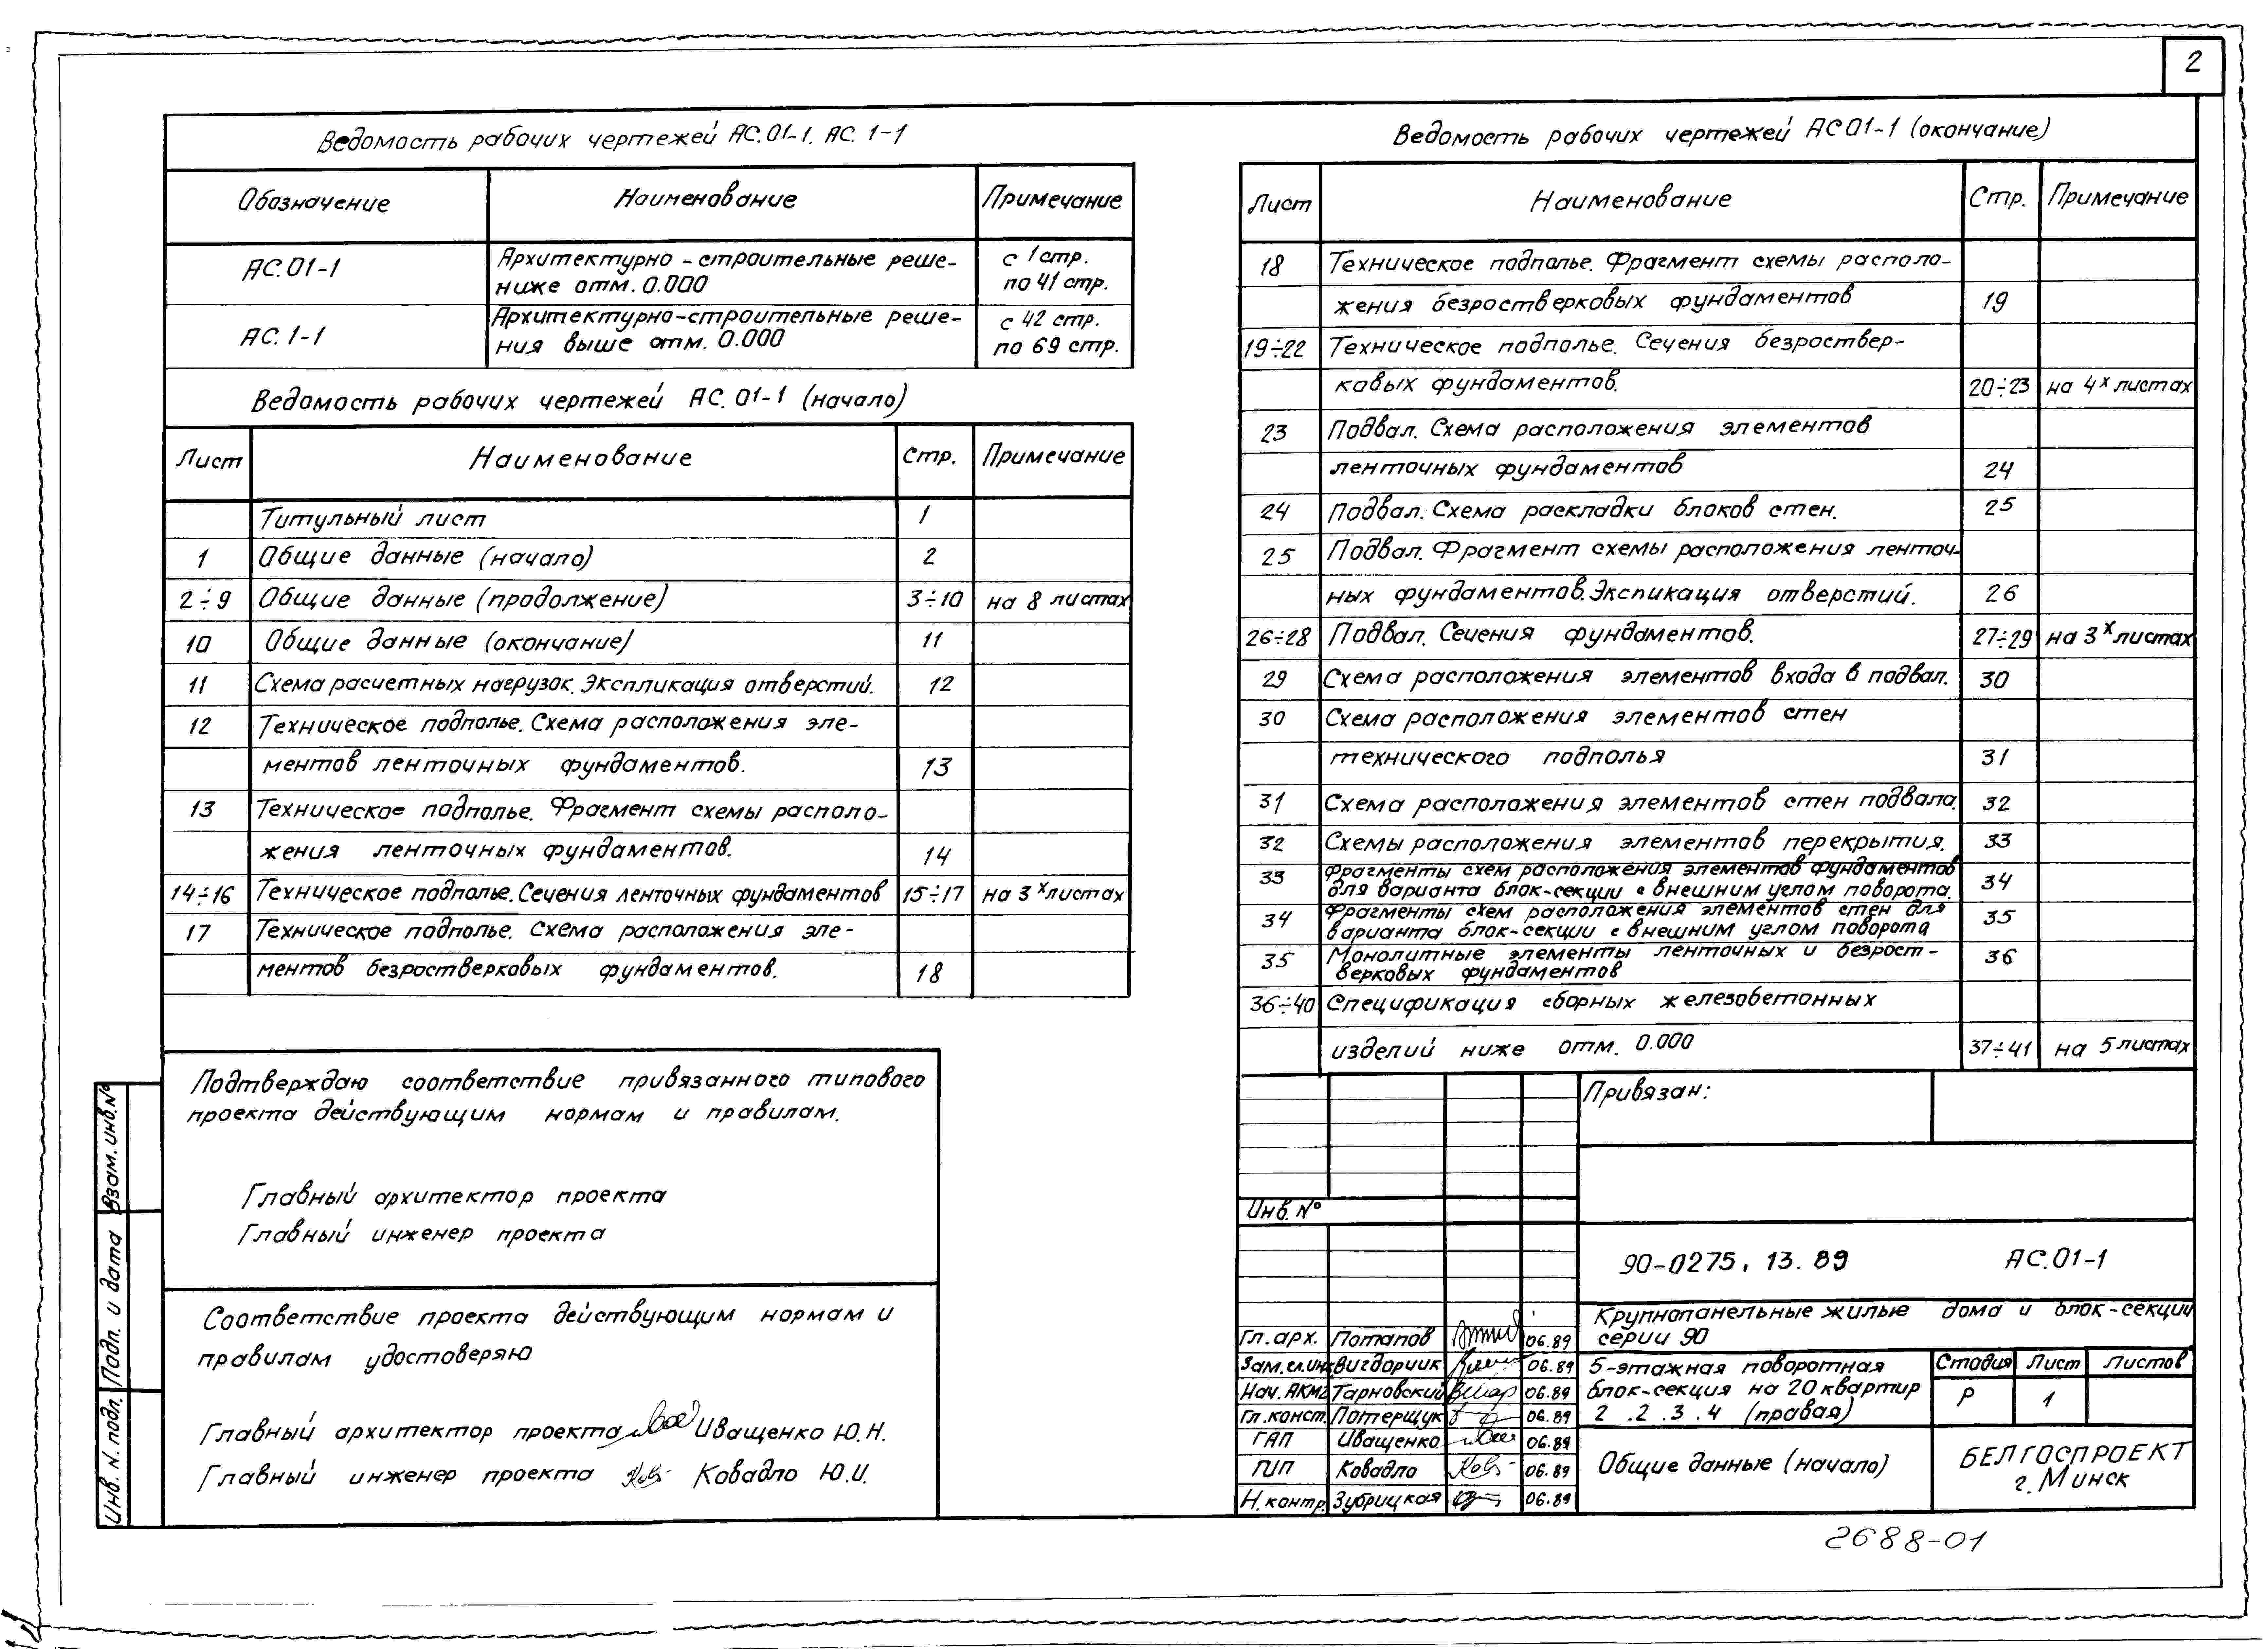 2
Ведомость рабочих чертежей АС.01-1. АС. 1-1
Обозначение Наименование Примечание
АС.01-1 Архитектурно-строительные реше- с 1 стр.
ниже отм. 0.000 по 41 стр.
АС. 1-1 Архитектурно-строительные реше- с 42 стр.
ния выше отм. 0.000 по 69 стр.
Ведомость рабочих чертежей АС. 01-1 (начало)
Лист Наименование Стр. Примечание
Титульный лист 1
1 Общие данные (начало) 2
2÷9 Общие данные (продолжение) 3÷10 на 8 листах
10 Общие данные (окончание) 11
11 Схема расчетных нагрузок. Экспликация отверстий. 12
12 Техническое подполье. Схема расположения эле-
ментов ленточных фундаментов. 13
13 Техническое подполье. Фрагмент схемы располо-
жения ленточных фундаментов. 14
14÷16 Техническое подполье. Сечения ленточных фундаментов 15÷17 на 3х листах
17 Техническое подполье. Схема расположения эле-
ментов безростверковых фундаментов. 18
Подтверждаю соответствие привязанного типового
проекта действующим нормам и правилам.
Главный архитектор проекта
Главный инженер проекта
Соответствие проекта действующим нормам и
правилам удостоверяю
Главный архитектор проекта Иващенко Ю.Н.
Главный инженер проекта Ковадло Ю.И.
Взам. инв.№
Подп. и дата
Инв. N. подл.
Ведомость рабочих чертежей АС 01-1 (окончание)
Лист Наименование Стр. Примечание
18 Техническое подполье. Фрагмент схемы располо-
жения безростверковых фундаментов 19
19÷22 Техническое подполье. Сечения безроствер-
ковых фундаментов. 20÷23 на 4х листах
23 Подвал. Схема расположения элементов
ленточных фундаментов 24
24 Подвал. Схема раскладки блоков стен. 25
25 Подвал. Фрагмент схемы расположения ленточ-
ных фундаментов. Экспикация отверстий. 26
26÷28 Подвал. Сечения фундаментов. 27÷29 на 3х листах
29 Схема расположения элементов входа в подвал. 30
30 Схема расположения элементов стен
технического подполья 31
31 Схема расположения элементов стен подвала. 32
32 Схемы расположения элементов перекрытия. 33
33 Фрагменты схем расположения элементов фундаментов 34
для варианта блок-секции с внешним углом поворота.
34 Фрагменты схем расположения элементов стен для 35
варианта блок-секции с внешним углом поворота
35 Монолитные элементы ленточных и безрост- 36
верковых фундаментов
36÷40 Спецификация сборных железобетонных
изделий ниже отм. 0.000 37÷41 на 5 листах
Привязан:
Инв. №
90-0275, 13. 89 АС.01-1
Крупнопанельные жилые дома и блок-секции
серии 90
Гл. арх. Потапов 06.89
Зам.гл.инж. Вигдорчик 06.89
Нач. АКМ2 Тарновский 06.89
Гл. конст. Потерщук 06.89
ГАП Иващенко 06.89
ГИП Ковадло 06.89
Н. контр. Зубрицкая 06.89
5-этажная поворотная
блок-секция на 20 квартир
2 .2 .3 .4 (правая)
Стадия Лист Листов
Р 1
Общие данные (начало)
БЕЛГОСПРОЕКТ
г. Минск
2688-01